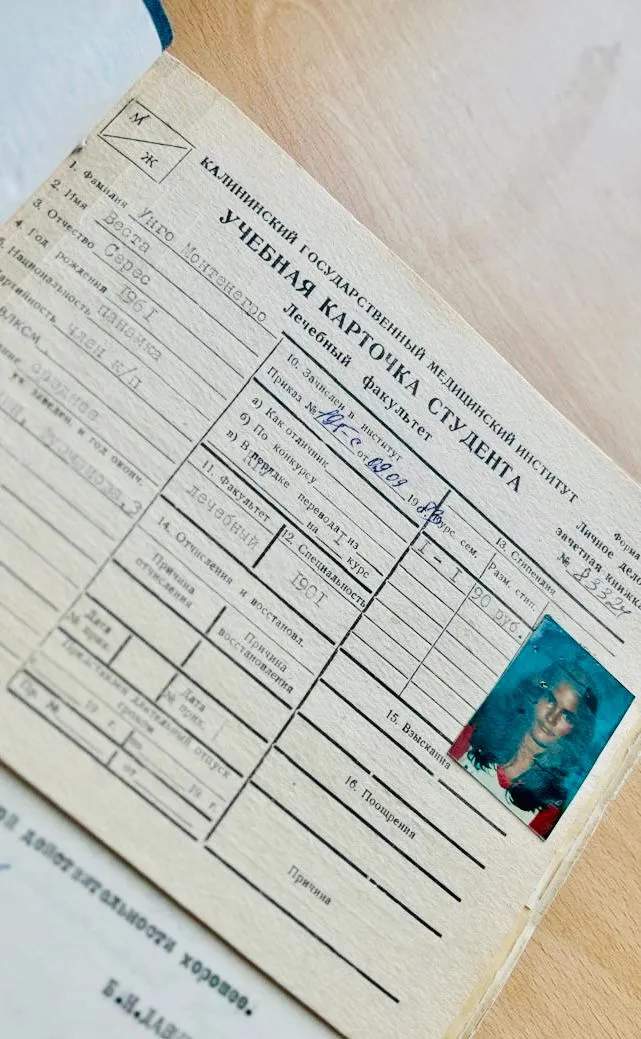 М
Ж
КАЛИНИНСКИЙ ГОСУДАРСТВЕННЫЙ МЕДИЦИНСКИЙ ИНСТИТУТ
УЧЕБНАЯ КАРТОЧКА СТУДЕНТА
Лечебный факультет
Форма
Личное дел
зачетная книжк
№ 83324
1. Фамилия Унго Монтенегро
2. Имя Веста
3. Отчество Серес
4. Год рождения 1961
5. Национальность панамка
партийность член к/п
ВЛКСМ
уч. заведение и год оконч.
10. Зачислен в институт
Приказ № 191-с от 09.09 1983
а) Как отличник
б) По конкурсу
в) В порядке перевода из
на I курс
11. Факультет
лечебный
12. Специальность
1901
13. Стипендия
Курс. сем.
Разм. стип.
I - I
90 руб.
14. Отчисления и восстановл.
Причина отчисления
Причина восстановления
Дата
№ прик.
Дата
№ прик.
Представлен длительный отпуск
сроком
19 г. по
Пр. №
от 19 г.
15. Взыскания
16. Поощрения
Причина
ой действительности хорошее.